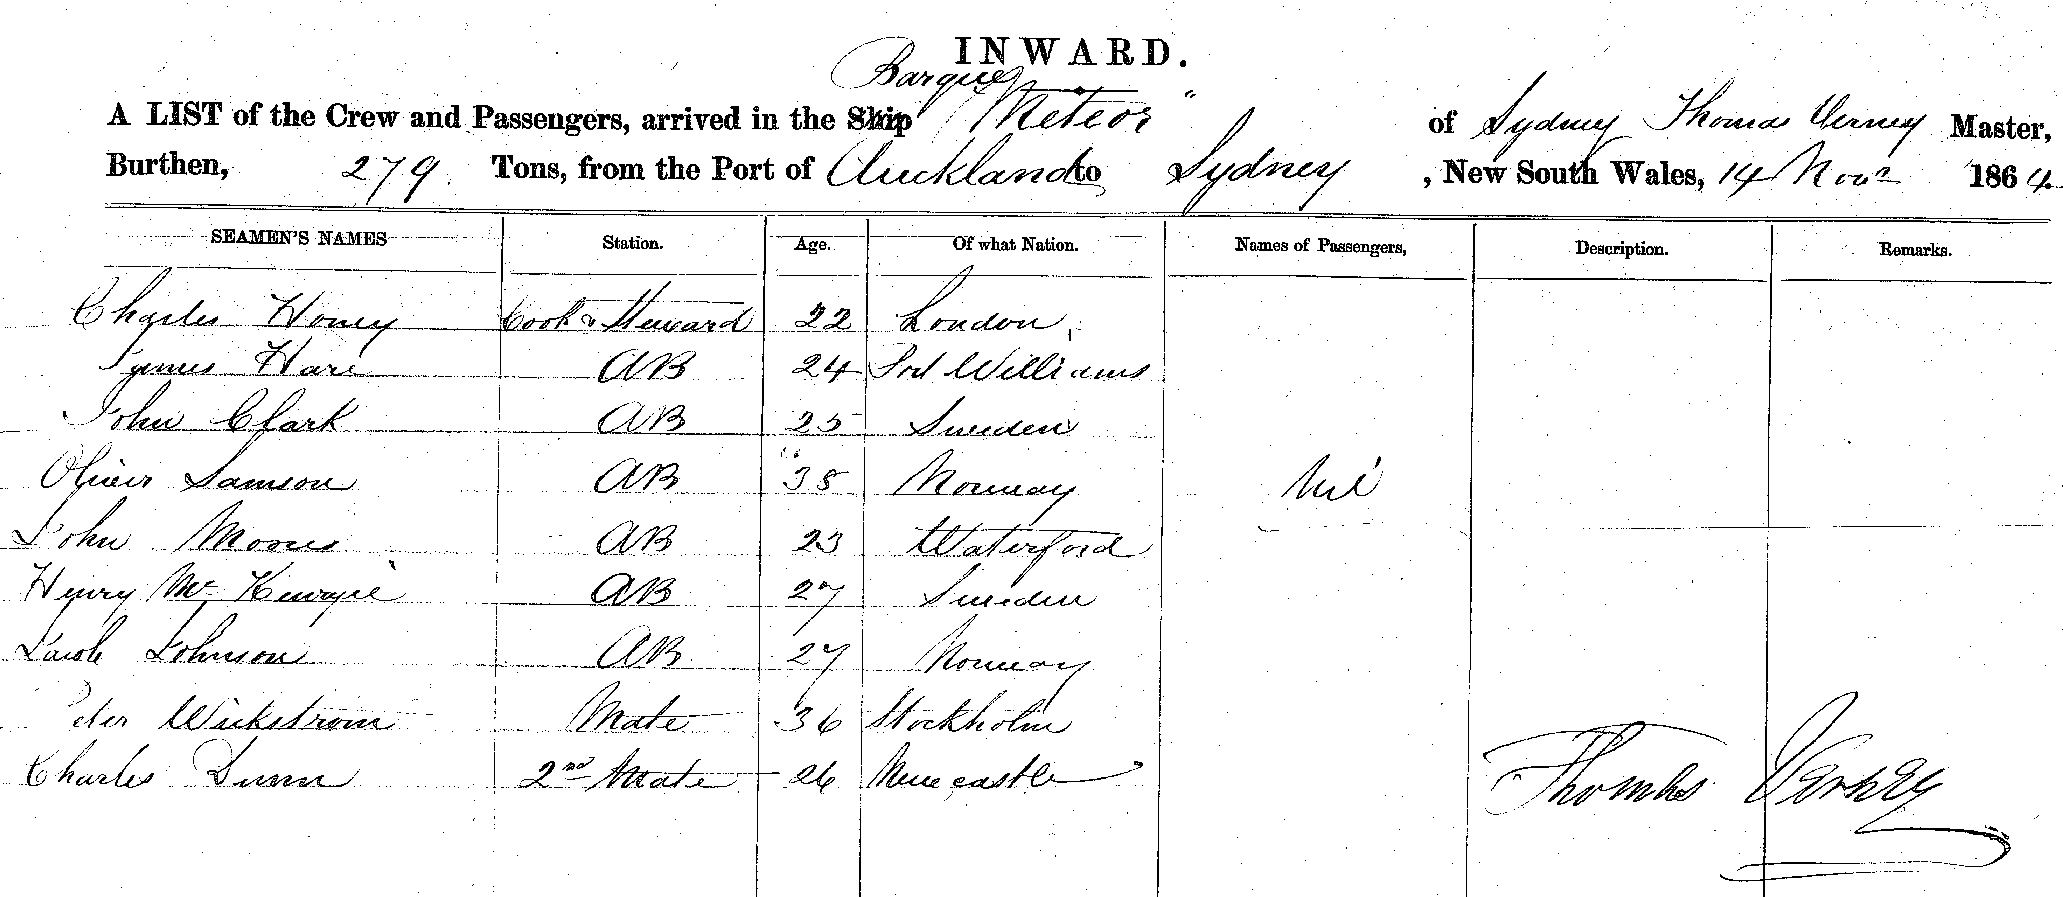 INWARD.
Barque
A LIST of the Crew and Passengers, arrived in the Ship "Meteor" of Sydney Thomas Verney Master,
Burthen, 279 Tons, from the Port of Auckland to Sydney, New South Wales, 14 Novr 1864
SEAMEN'S NAMES Station. Age. Of what Nation. Names of Passengers, Description. Remarks.
Charles Honey Cook & Steward 22 London
James Hare AB 24 Port Williams
John Clark AB 25 Sweden
Oliver Samson AB 38 Norway Nil
John Morris AB 23 Waterford
Henry Mc AB 27 Sweden
Jacob Johnson AB 27 Norway
Peter Wickstrom Mate 36 Stockholm
Charles Dunn 2nd Mate 26 Newcastle
Thomas Verney